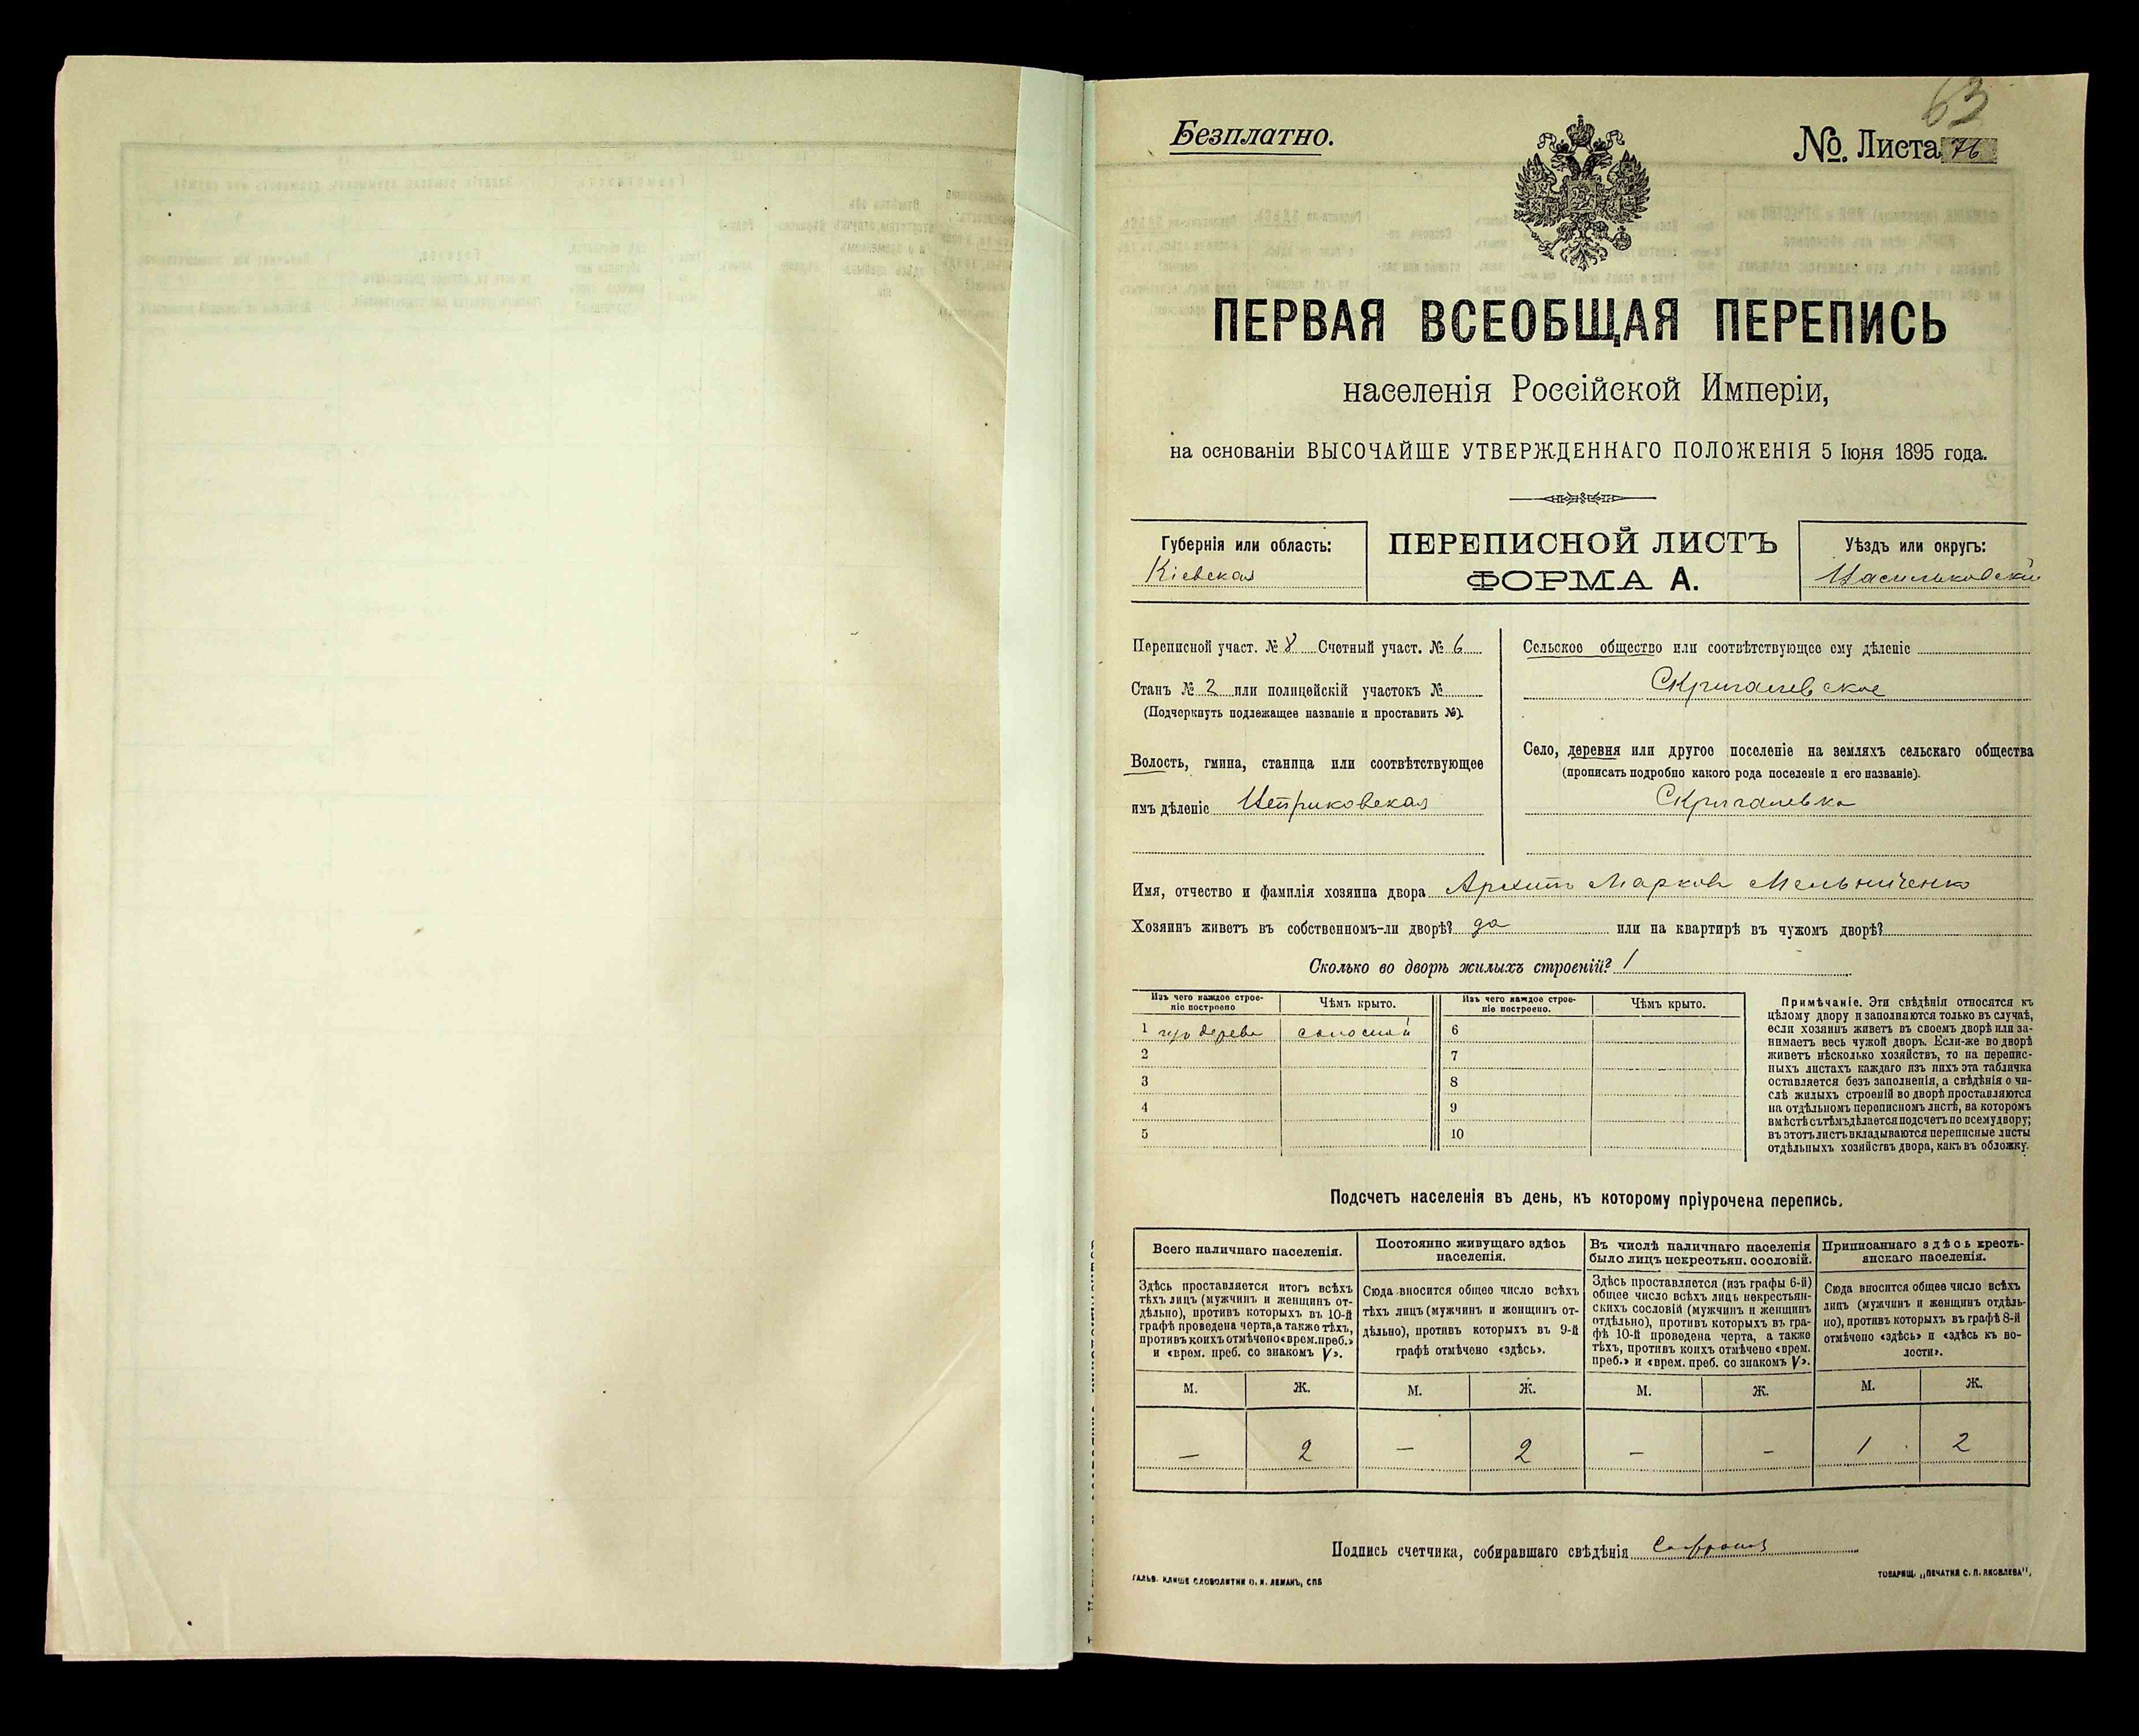 63
Безплатно.
№. Листа 76
ПЕРВАЯ ВСЕОБЩАЯ ПЕРЕПИСЬ
населенія Россійской Имперіи,
на основаніи ВЫСОЧАЙШЕ УТВЕРЖДЕННАГО ПОЛОЖЕНІЯ 5 Іюня 1895 года.
Губернія или область:
Кіевская
ПЕРЕПИСНОЙ ЛИСТЪ
ФОРМА А.
Уѣздъ или округъ:
Васильковскій
Переписной участ. № 8 Счетный участ. № 6
Станъ № 2 или полицейскій участокъ №
(Подчеркнуть подлежащее названіе и проставить №).
Волость, гмина, станица или соотвѣтствующее
имъ дѣленіе
Сельское общество или соотвѣтствующее ему дѣленіе
Скригалевское
Село, деревня или другое поселеніе на земляхъ сельскаго общества
(прописать подробно какого рода поселеніе и его названіе).
Скригалевка
Имя, отчество и фамилія хозяина двора Архипъ Марковъ Мельниченко
Хозяинъ живетъ въ собственномъ-ли дворѣ? да или на квартирѣ въ чужомъ дворѣ?
Сколько во дворѣ жилыхъ строеній? 1
Изъ чего каждое строе-
ніе построено
Чѣмъ крыто.
Изъ чего каждое строе-
ніе построено.
Чѣмъ крыто.
1 изъ дерева соломой 6
2 7
3 8
4 9
5 10
Примѣчаніе. Эти свѣдѣнія относятся къ
цѣлому двору и заполняются только въ случаѣ,
если хозяинъ живетъ въ своемъ дворѣ или за-
нимаетъ весь чужой дворъ. Если-же во дворѣ
живетъ нѣсколько хозяйствъ, то на перепис-
ныхъ листахъ каждаго изъ нихъ эта табличка
оставляется безъ заполненія, а свѣдѣнія о чи-
слѣ жилыхъ строеній во дворѣ проставляются
на отдѣльномъ переписномъ листѣ, на которомъ
вмѣстѣ съ тѣмъ дѣлается подсчетъ по всему двору;
въ этотъ листъ вкладываются переписные листы
отдѣльныхъ хозяйствъ двора, какъ въ обложку.
Подсчетъ населенія въ день, къ которому пріурочена перепись.
Всего наличнаго населенія.
Здѣсь проставляется итогъ всѣхъ
тѣхъ лицъ (мужчинъ и женщинъ от-
дѣльно), противъ которыхъ въ 10-й
графѣ проведена черта, а также тѣхъ,
противъ коихъ отмѣчено «врем. преб.»
и «врем. преб. со знакомъ V».
Постоянно живущаго здѣсь
населенія.
Сюда вносится общее число всѣхъ
тѣхъ лицъ (мужчинъ и женщинъ от-
дѣльно), противъ которыхъ въ 9-й
графѣ отмѣчено «здѣсь».
Въ числѣ наличнаго населенія
было лицъ некрестьян. сословій.
Здѣсь проставляется (изъ графы 6-й)
общее число всѣхъ лицъ некрестьян-
скихъ сословій (мужчинъ и женщинъ
отдѣльно), противъ которыхъ въ гра-
фѣ 10-й проведена черта, а также
тѣхъ, противъ коихъ отмѣчено «врем.
преб.» и «врем. преб. со знакомъ V».
Приписаннаго здѣсь кресть-
янскаго населенія.
Сюда вносится общее число всѣхъ
лицъ (мужчинъ и женщинъ отдѣль-
но), противъ которыхъ въ графѣ 8-й
отмѣчено «здѣсь» и «здѣсь къ во-
лости».
М. Ж. М. Ж. М. Ж. М. Ж.
— 2 — 2 — — 1 2
Подпись счетчика, собиравшаго свѣдѣнія
ГАЛЬВ. КЛИШЕ СЛОВОЛИТНИ О. И. ЛЕМАНЪ, СПБ
ТОВАРИЩ. „ПЕЧАТНЯ С. П. ЯКОВЛЕВА“.